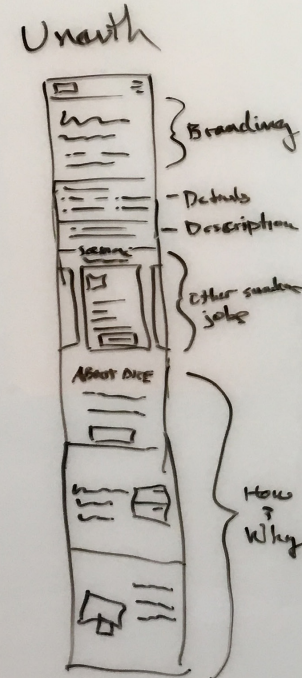 Unauth
Branding
Details
Description
Other
jobs
ABOUT DICE
How
&
Why